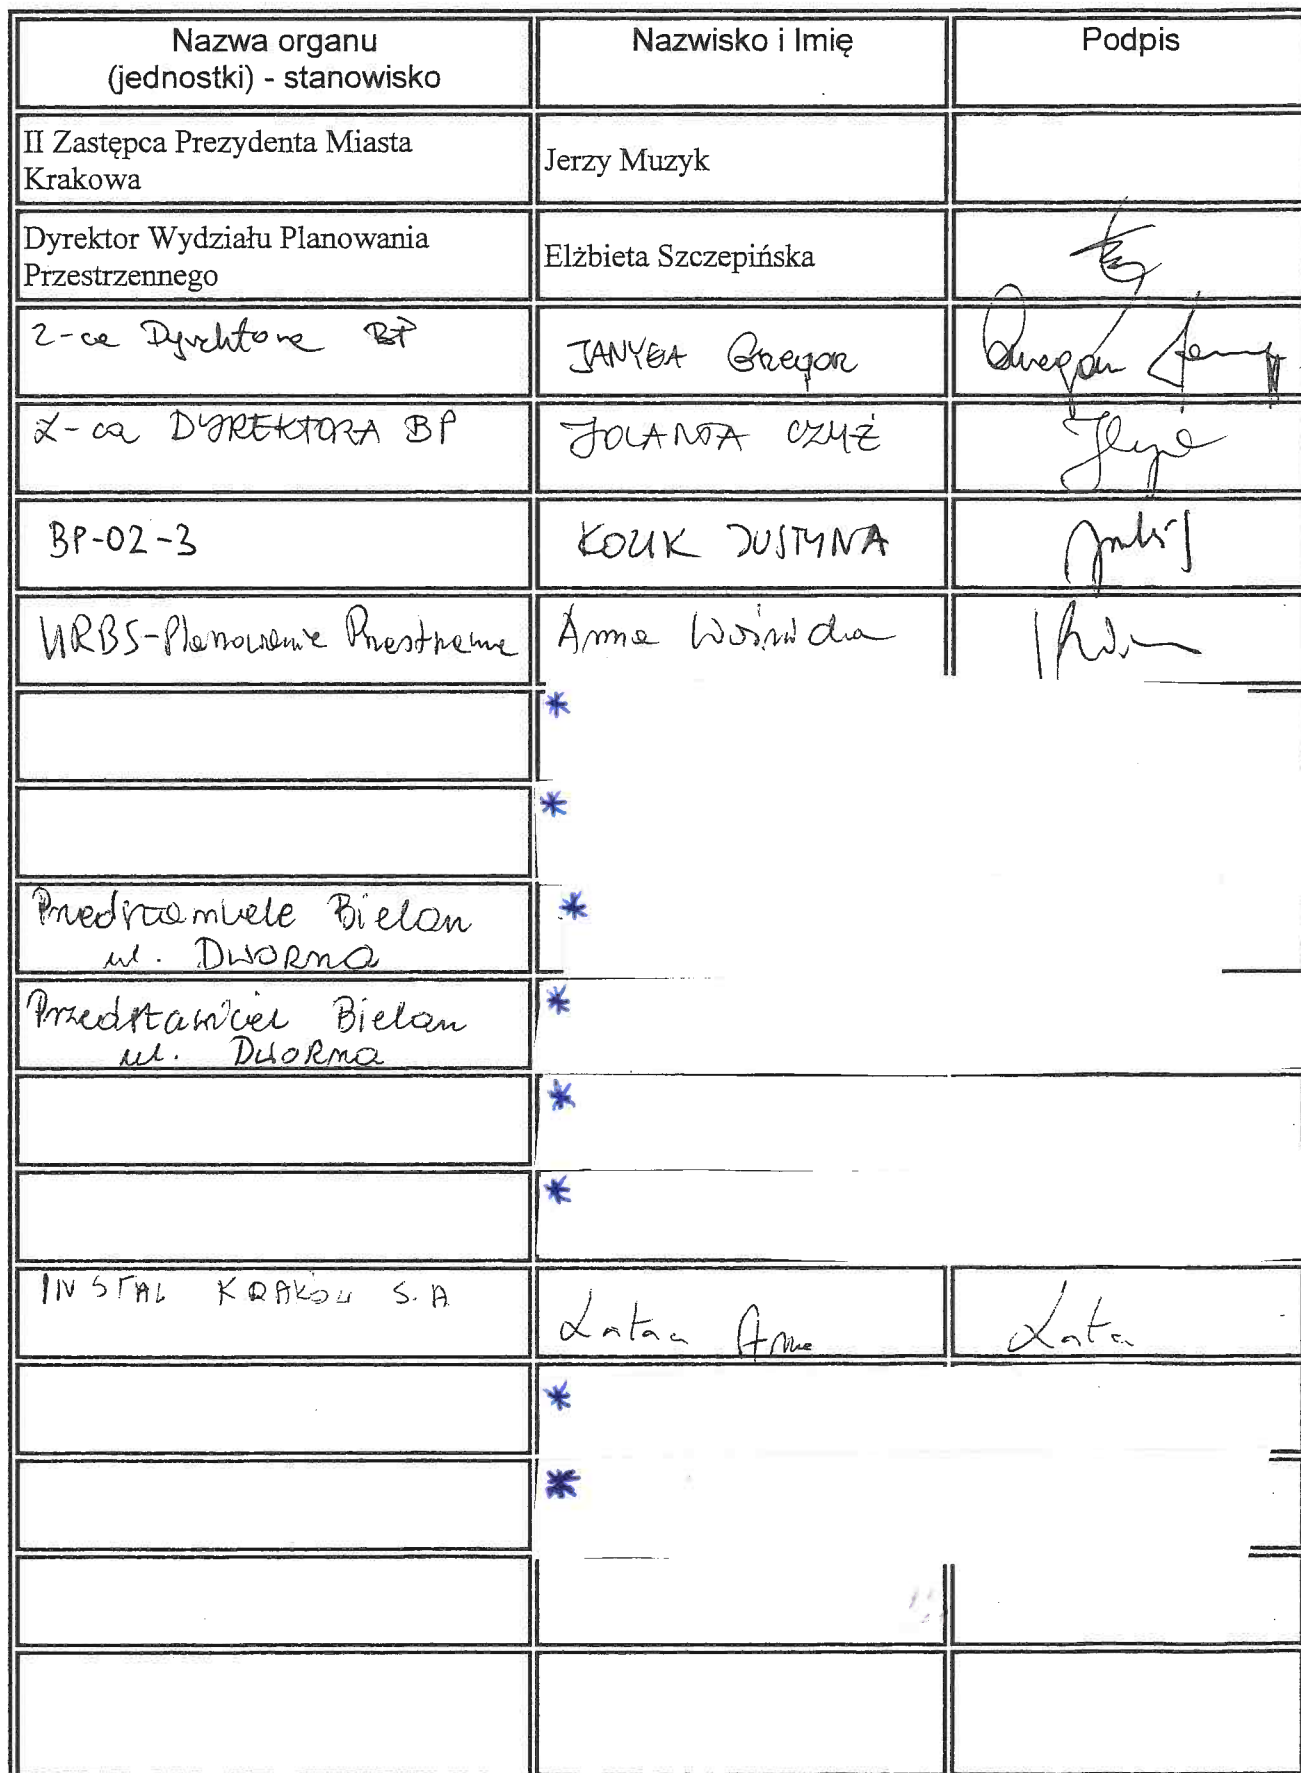 Nazwa organu
(jednostki) - stanowisko
Nazwisko i Imię
Podpis
II Zastępca Prezydenta Miasta
Krakowa
Jerzy Muzyk
Dyrektor Wydziału Planowania
Przestrzennego
Elżbieta Szczepińska
Z-ca Dyrektora BP
JANYGA Grzegorz
Z-ca DYREKTORA BP
JOLANTA CZYŻ
BP-02-3
KOLIK JUSTYNA
URBS-Planowanie Przestrzenne
Anna Woźnicka
*
*
Bielan
ul. DWORNA
*
Przedstawiciel Bielan
ul. DWORNA
*
*
*
INSTAL KRAKÓW S.A
Anna
*
*